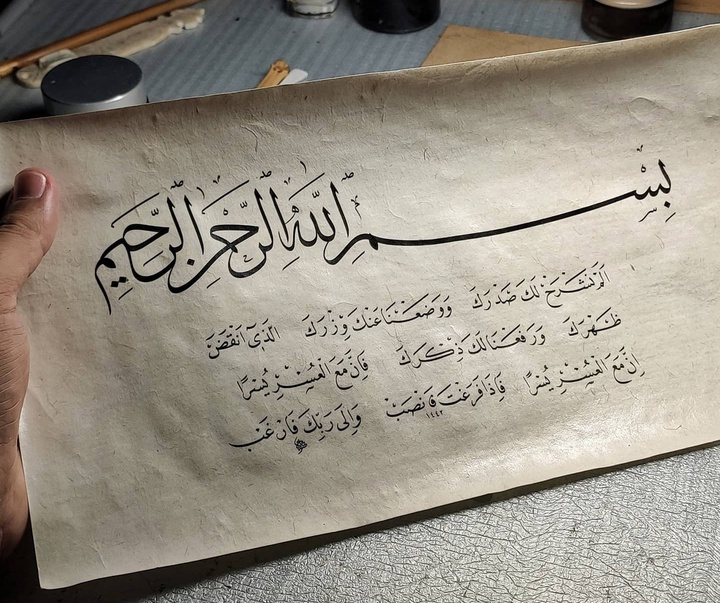 بِسْمِ اللّٰهِ الرَّحْمٰنِ الرَّحِيمِ
اَلَمْ نَشْرَحْ لَكَ صَدْرَكَ وَوَضَعْنَا عَنْكَ وِزْرَكَ اَلَّذِىٓ اَنْقَضَ
ظَهْرَكَ وَرَفَعْنَا لَكَ ذِكْرَكَ فَاِنَّ مَعَ الْعُسْرِ يُسْرًا
اِنَّ مَعَ الْعُسْرِ يُسْرًا فَاِذَا فَرَغْتَ فَانْصَبْ
وَاِلٰى رَبِّكَ فَارْغَبْ
١٤٤٢